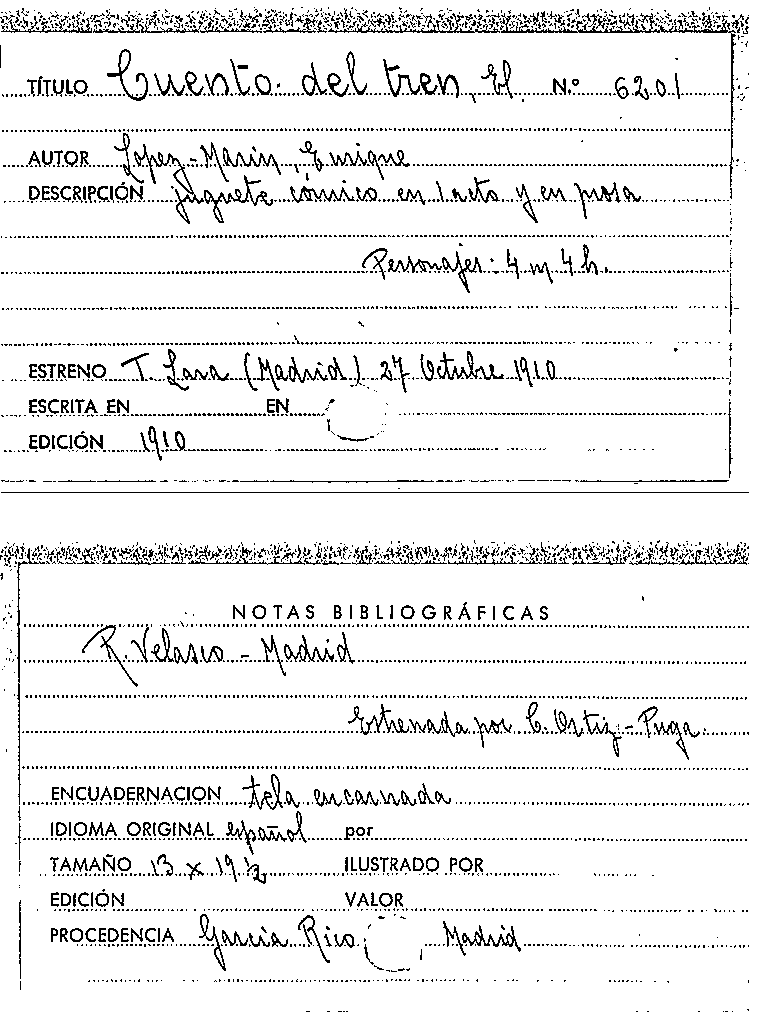 TÍTULO Cuento del tren, El. N.º 6201
AUTOR Lopez-Marin, Enrique
DESCRIPCIÓN juguete cómico en 1 acto y en prosa
Personajes: 4 m 4 h.
ESTRENO T. Lara (Madrid) 27 Octubre 1910
ESCRITA EN EN
EDICIÓN 1910
NOTAS BIBLIOGRÁFICAS
R. Velasco - Madrid
Estrenada por C. Ortiz - Puga.
ENCUADERNACION tela encarnada
IDIOMA ORIGINAL español por
TAMAÑO 13 x 19 ½ ILUSTRADO POR
EDICIÓN VALOR
PROCEDENCIA García Rico, Madrid